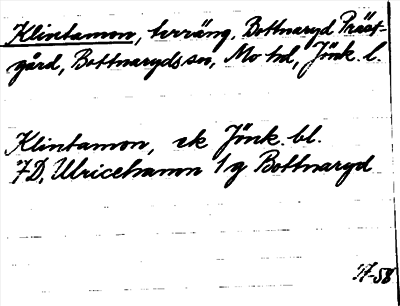 Klintamon, terräng, Bottnaryd Präst-
gård, Bottnaryds sn, Mo hd, Jönk. l.
Klintamon, ek Jönk. bl.
7D, Ulricehamn 1g Bottnaryd
17-58